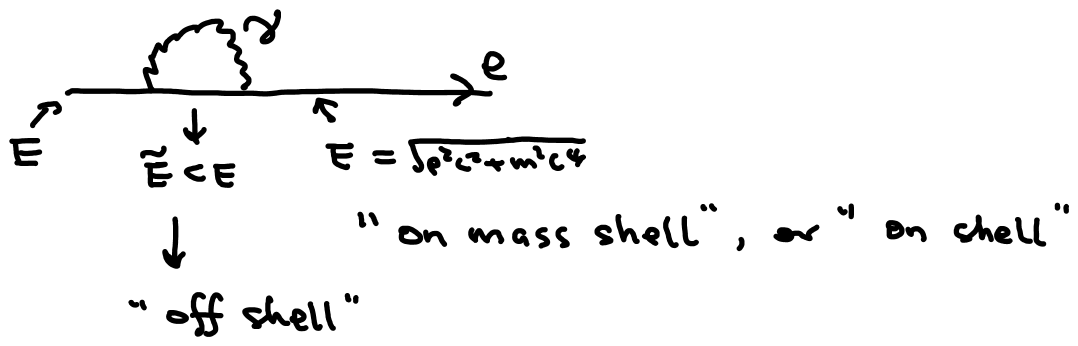 γ
e
E
Ẽ < E
E = √p²c²+m²c⁴
"on mass shell", or "on shell"
"off shell"